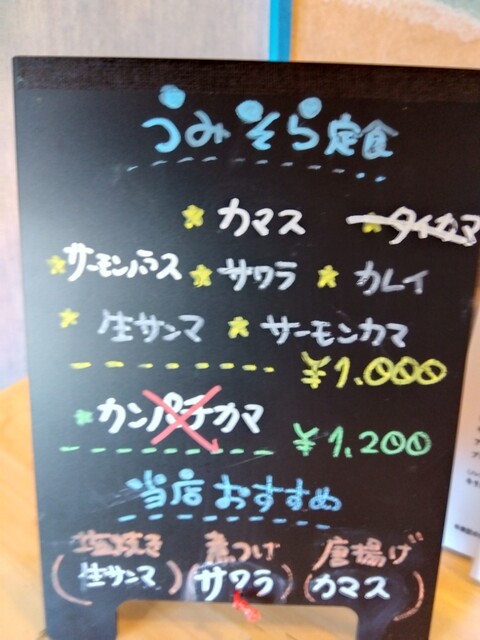 うみそら定食
★カマス ★タイカマ
★サーモンハラス ★サワラ ★カレイ
★生サンマ ★サーモンカマ
¥1.000
★カンパチカマ ¥1,200
当店おすすめ
塩焼き 煮つけ 唐揚げ
(生サンマ) (サワラ) (カマス)